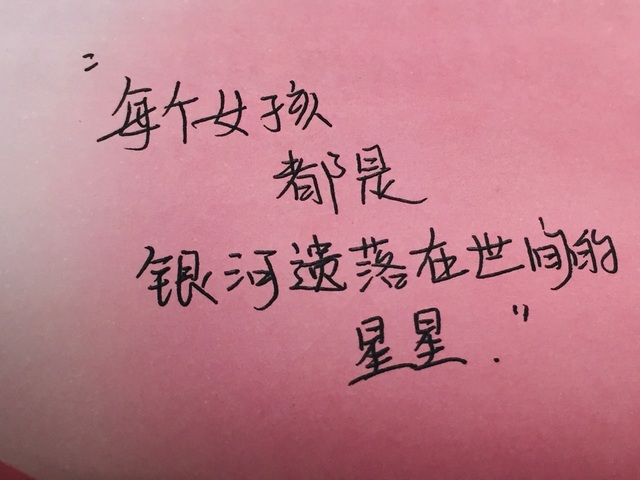 “每个女孩
都是
银河遗落在世间的
星星.”